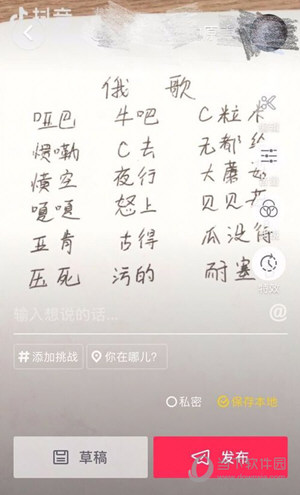 抖音
俄 歌
哑巴 牛吧 C粒
惯嘞 C去 无都
横空 夜行 大蘑
嘎嘎 怒上 贝贝
亚肯 古得 瓜没得
压死 污的 耐塞
输入想说的话... @
#添加挑战 你在哪儿?
私密 保存本地
草稿 发布
当下软件园